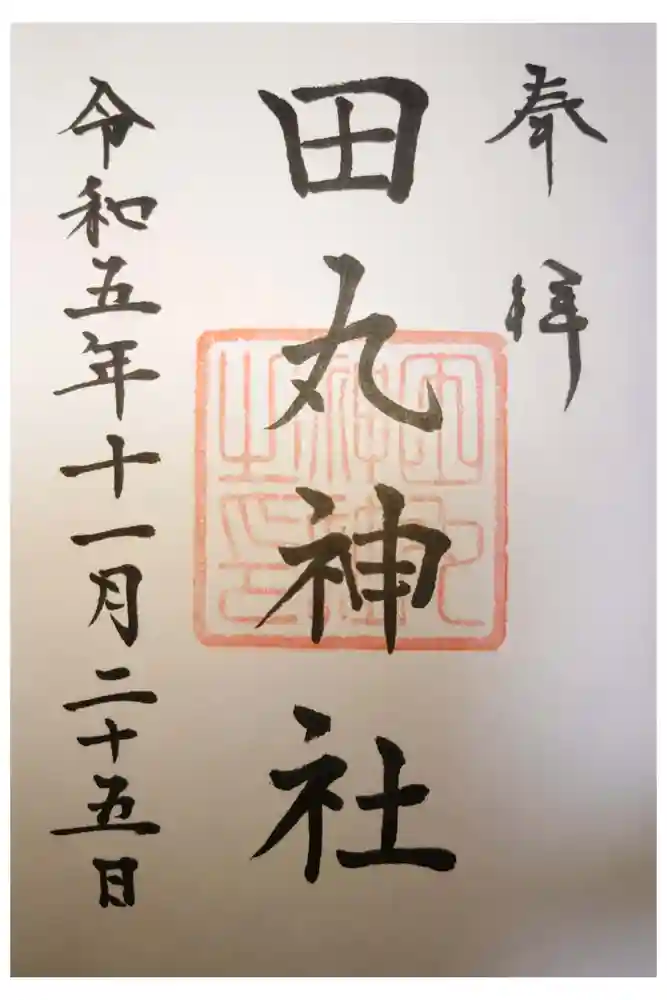 奉拝
田丸神社
田丸神社之印
令和五年十一月二十五日